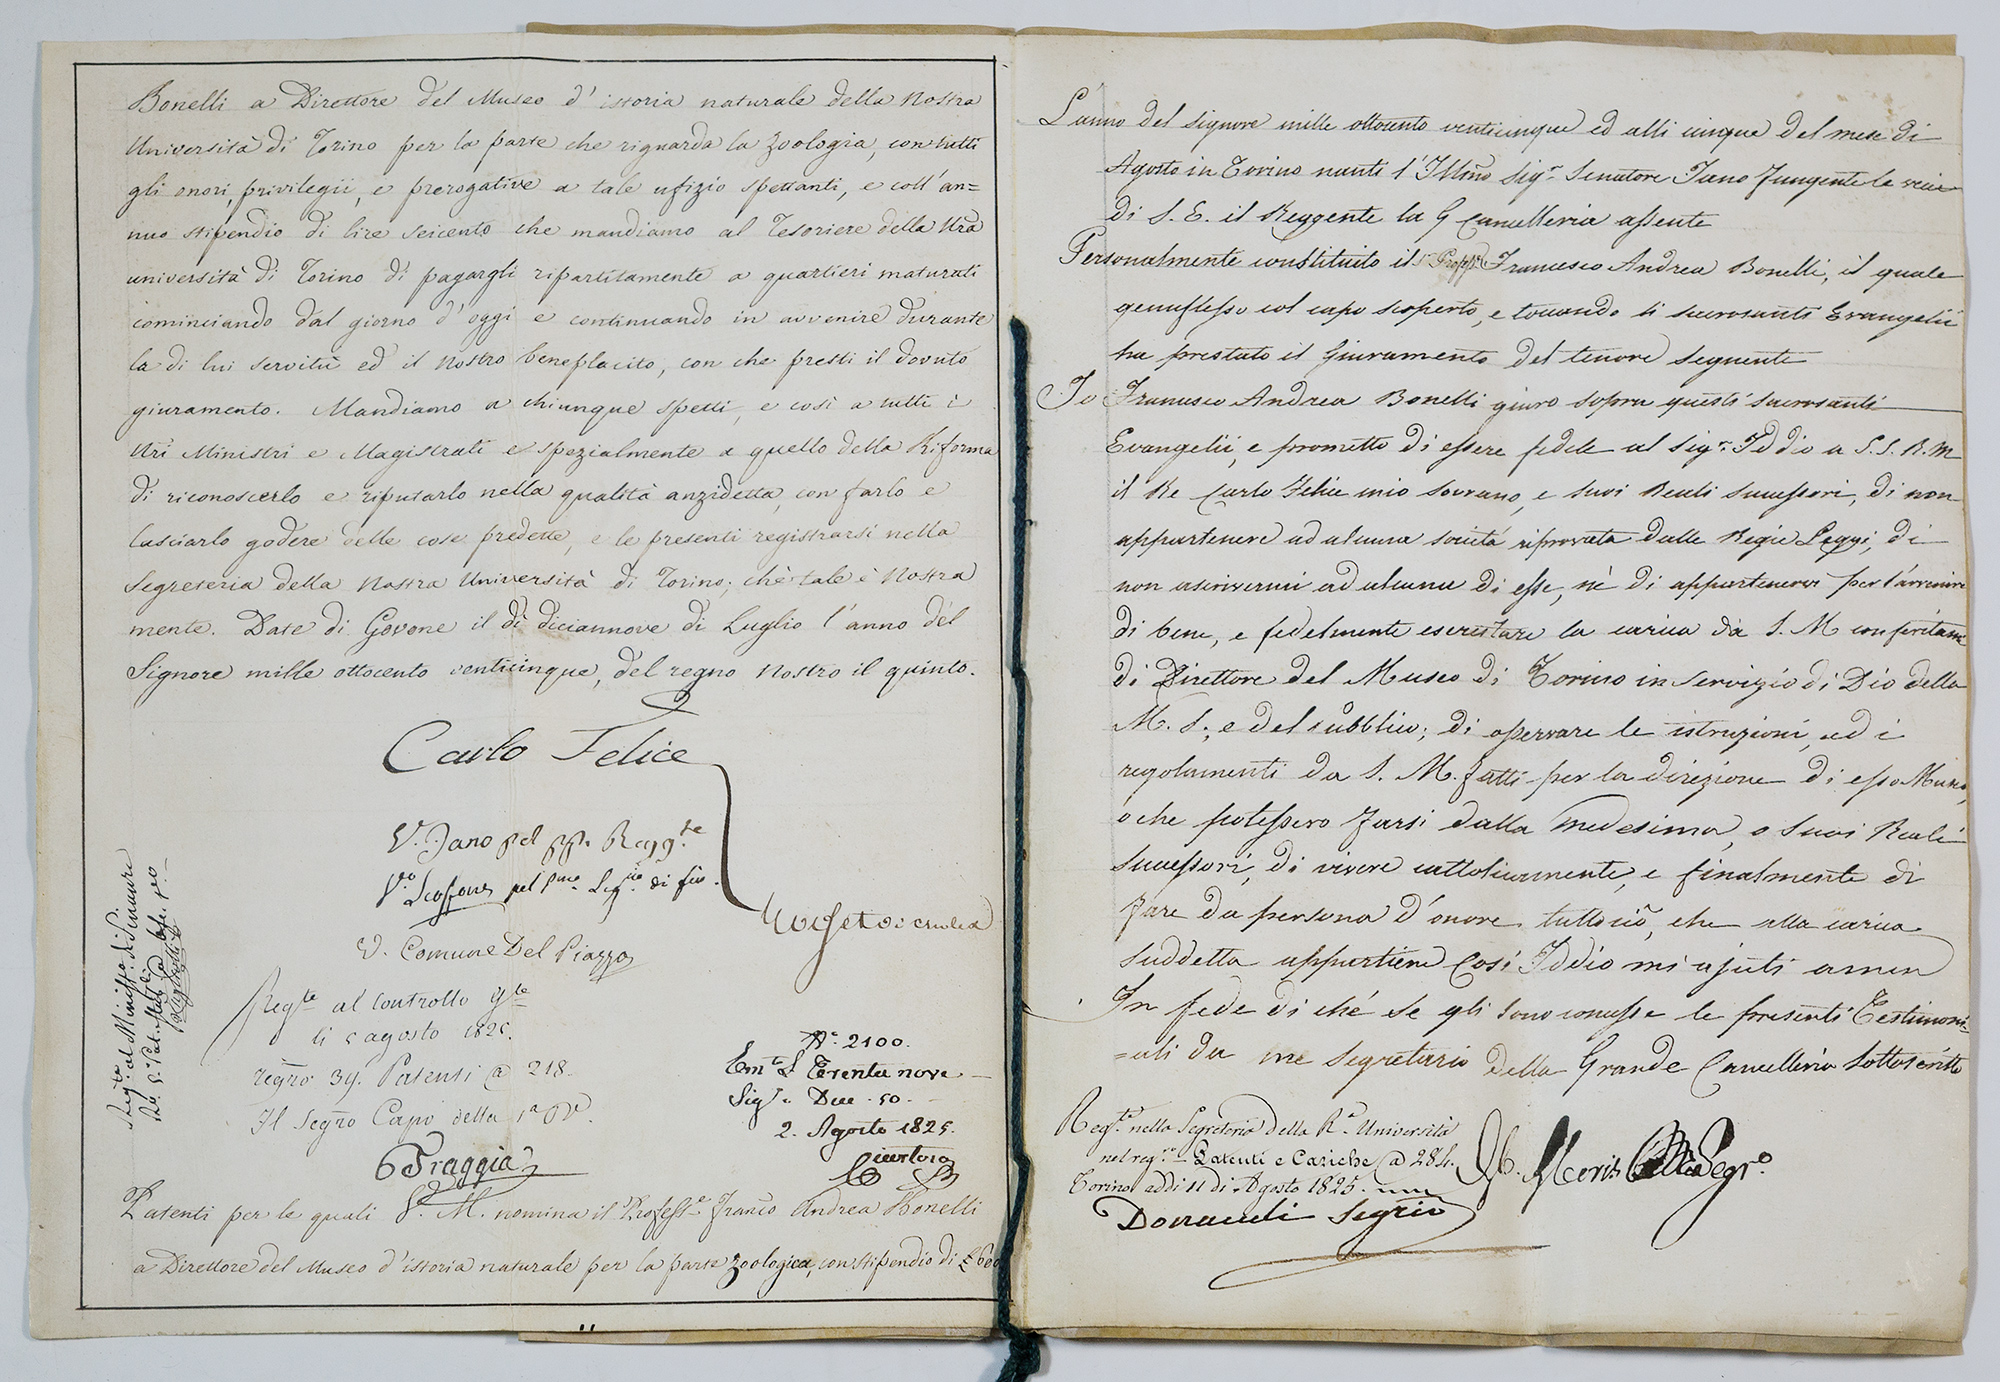 Bonelli a Direttore del Museo d'istoria naturale della nostra
Università di Torino per la parte che riguarda la zoologia, con tutti
gli onori, privilegii, e prerogative a tale ufizio spettanti, e coll'an=
nuo stipendio di lire seicento che mandiamo al Tesoriere della Nrã
università di Torino di pagargli ripartitamente a quartieri maturati
cominciando dal giorno d'oggi e continuando in avvenire durante
la di lui servitù ed il nostro beneplacito, con che presti il dovuto
giuramento. Mandiamo a chiunque spetti, e così a tutti i
Nri Ministri e Magistrati e spezialmente a quello della Riforma
di riconoscerlo e riputarlo nella qualità anzidetta, con farlo e
lasciarlo godere delle cose predette, e le presenti registrarsi nella
Segreteria della nostra Università di Torino; chè tale è nostra
mente. Date di Govone il dì diciannove di Luglio l'anno del
Signore mille ottocento venticinque, del regno nostro il quinto.
Carlo Felice
V. Jano pel Regg.te
V. Comune Del Piazzo
Reg.te al Controllo g.le
li 5 agosto 1825.
regrõ 39. Patenti @ 218.
Il Segrõ Capo della 1.a
Fraggia
N.° 2100.
Em.te L Trenta nove
Sig.° Due. 50.
2. Agosto 1825.
Patenti per le quali V. M. nomina il Profess.e Franco Andrea Bonelli
a Direttore del Museo d'istoria naturale per la parte zoologica, con stipendio di £ 600
L'anno del signore mille ottocento venticinque ed alli cinque del mese di
Agosto in Torino nanti l'Illmo Sig.r Senatore Jano Fungente le veci
di S. E. il Reggente la G Cancelleria assente
Personalmente constituito il S.r Profess.e Francesco Andrea Bonelli, il quale
genuflesso col capo scoperto, e toccando li sacrosanti Evangelii
ha prestato il Giuramento del tenore seguente
Io Francesco Andrea Bonelli giuro sopra questi sacrosanti
Evangelii, e prometto di essere fedele al Sig.r Iddio a S. S. R. M
il Re Carlo Felice mio sovrano, e suoi Reali successori, di non
appartenere ad alcuna società riprovata dalle Regie Leggi, di
non ascrivermi ad alcuna di esse, nè di appartenervi per l'avvenire
di bene, e fedelmente esercitare la carica da S. M conferitami
di Direttore del Museo di Torino in servizio di Dio della
M. S., e del pubblico; di osservare le istruzioni, ed i
regolamenti da S. M. fatti per la direzione di esso Museo,
o che potessero farsi dalla medesima, o suoi Reali
successori, di vivere cattolicamente, e finalmente di
fare da persona d'onore tutto ciò, che alla carica
suddetta appartiene Così Iddio mi ajuti amen
In fede di chè se gli sono concesse le presenti Testimoni
=ali da me segretario della Grande Cancelleria sottoscritto
Reg.te nella Segreteria della R.a Università
nel reg.ro Patenti e Cariche @ 284.
Torino addi 11 di Agosto 1825.
Segrio
Segr.o